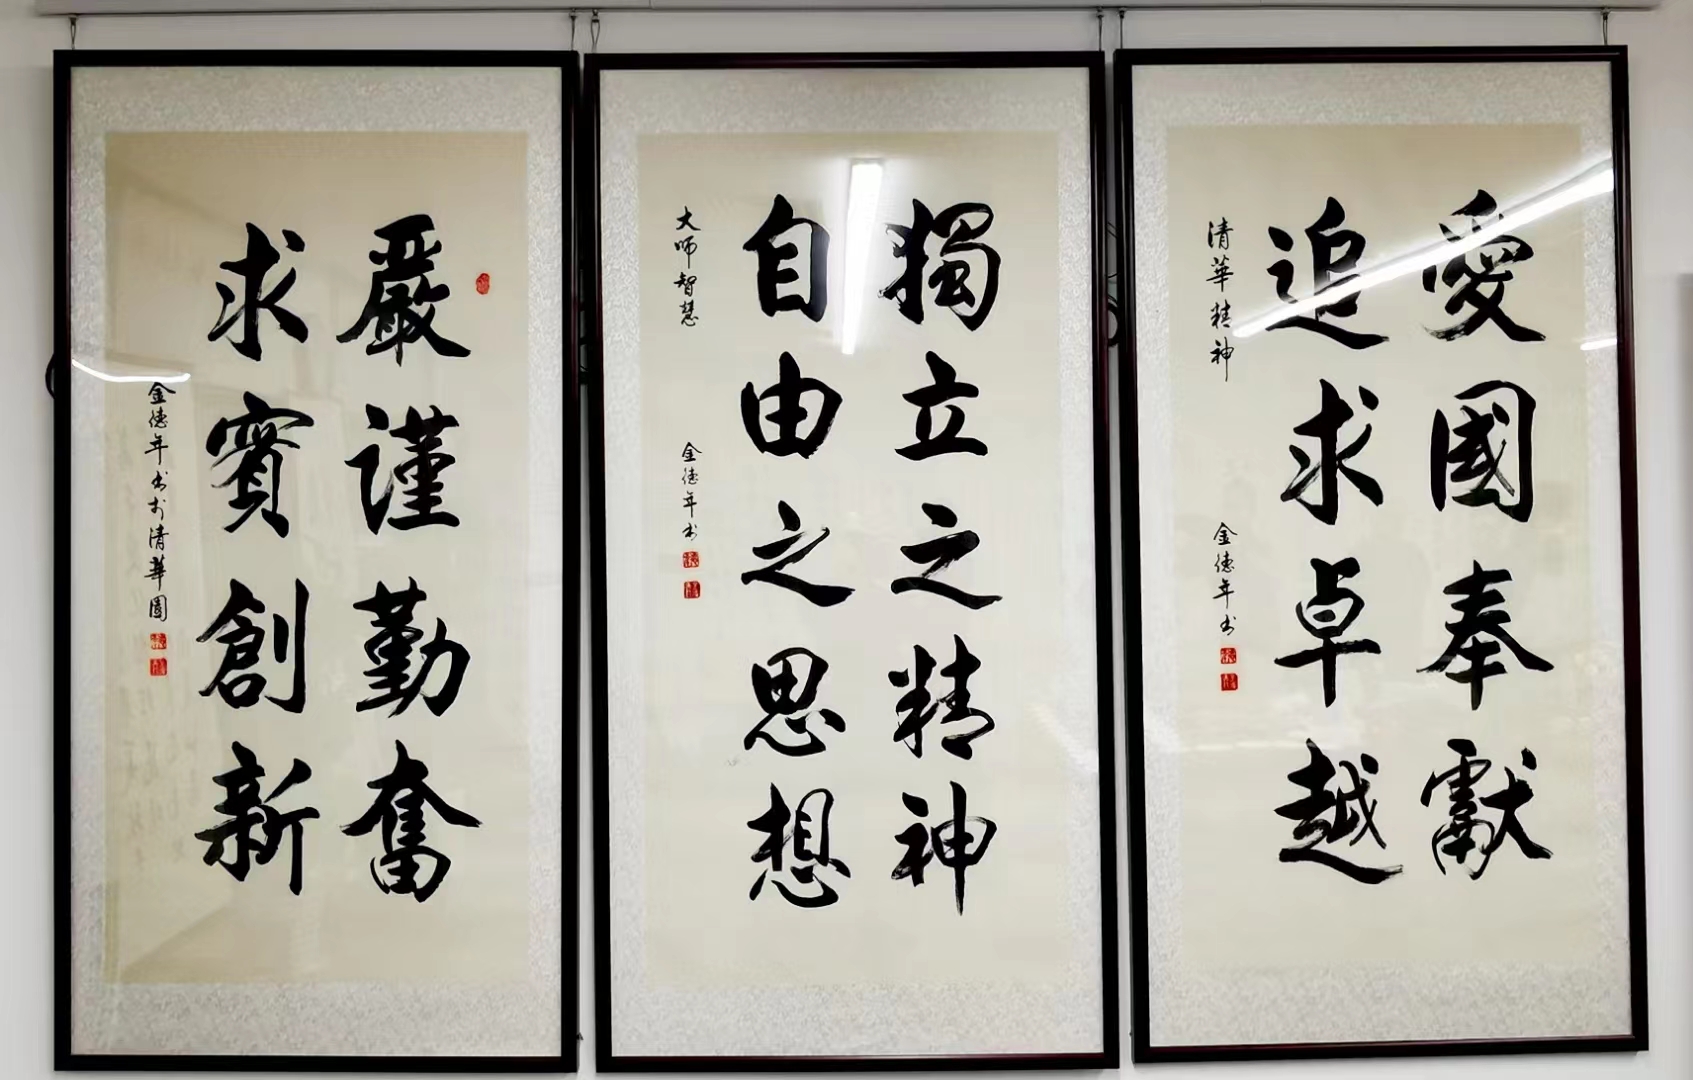 愛國奉獻
追求卓越
清華精神
金德年书
獨立之精神
自由之思想
大师智慧
金德年书
嚴謹勤奮
求實創新
金德年书於清華園